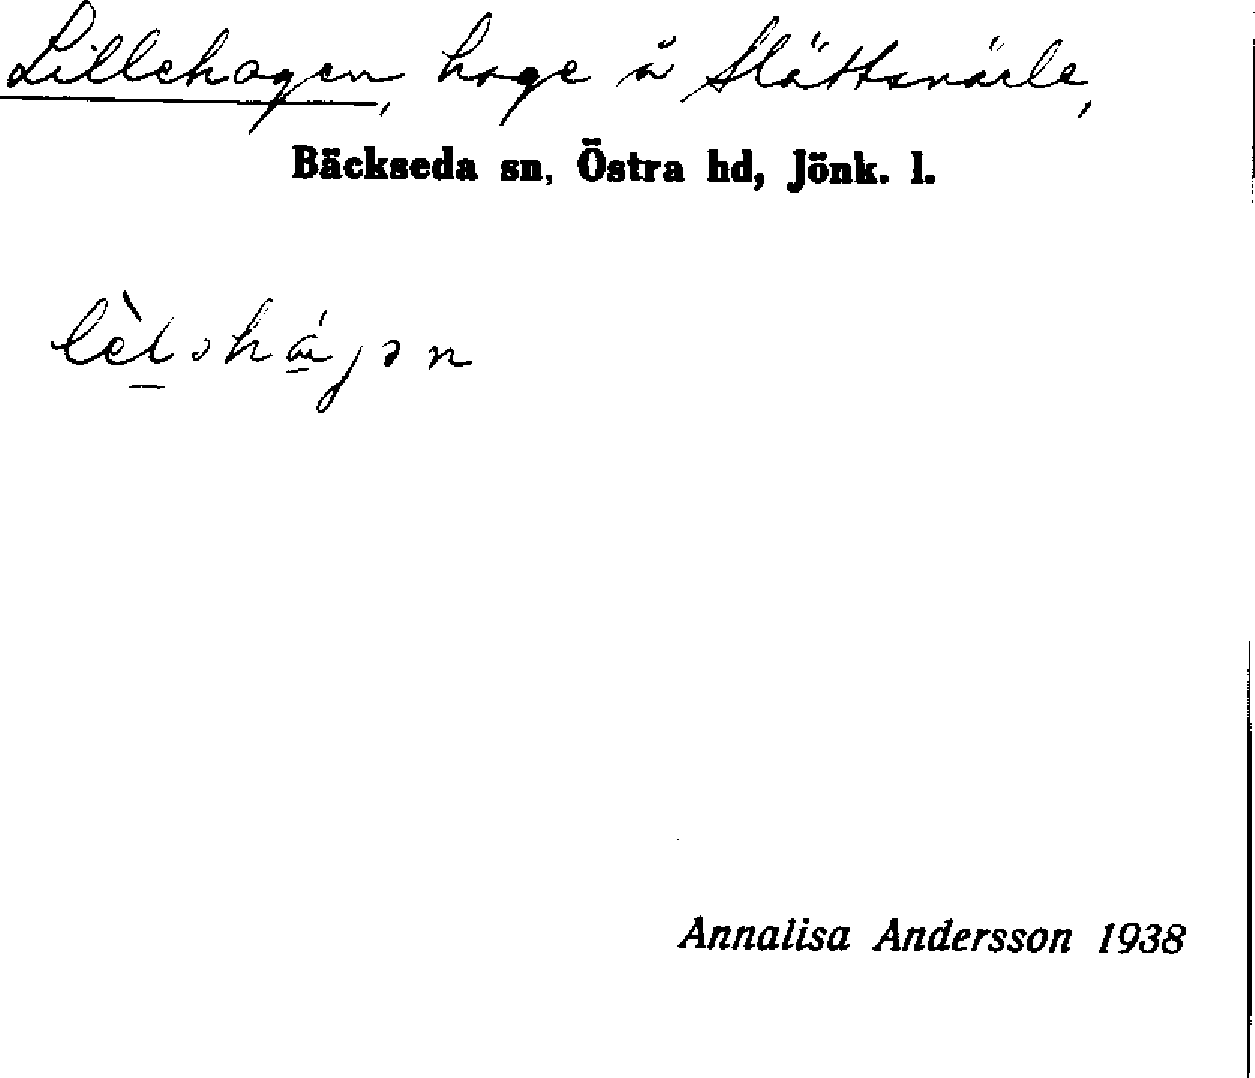 Lillehagen, hage å Slättsnärle,
Bäckseda sn, Östra hd, Jönk. l.
Annalisa Andersson 1938